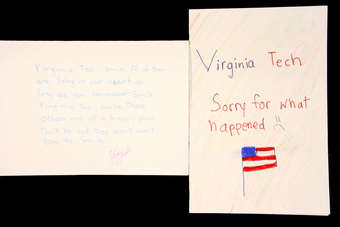 Virginia Tec, smile All of them
are living in your heart as
long as you remember. Smile
Virginia Tec, smile. These
others are at a happy place
Don't be sad They don't want
you to Smile
Virginia Tech
Sorry for what
happened